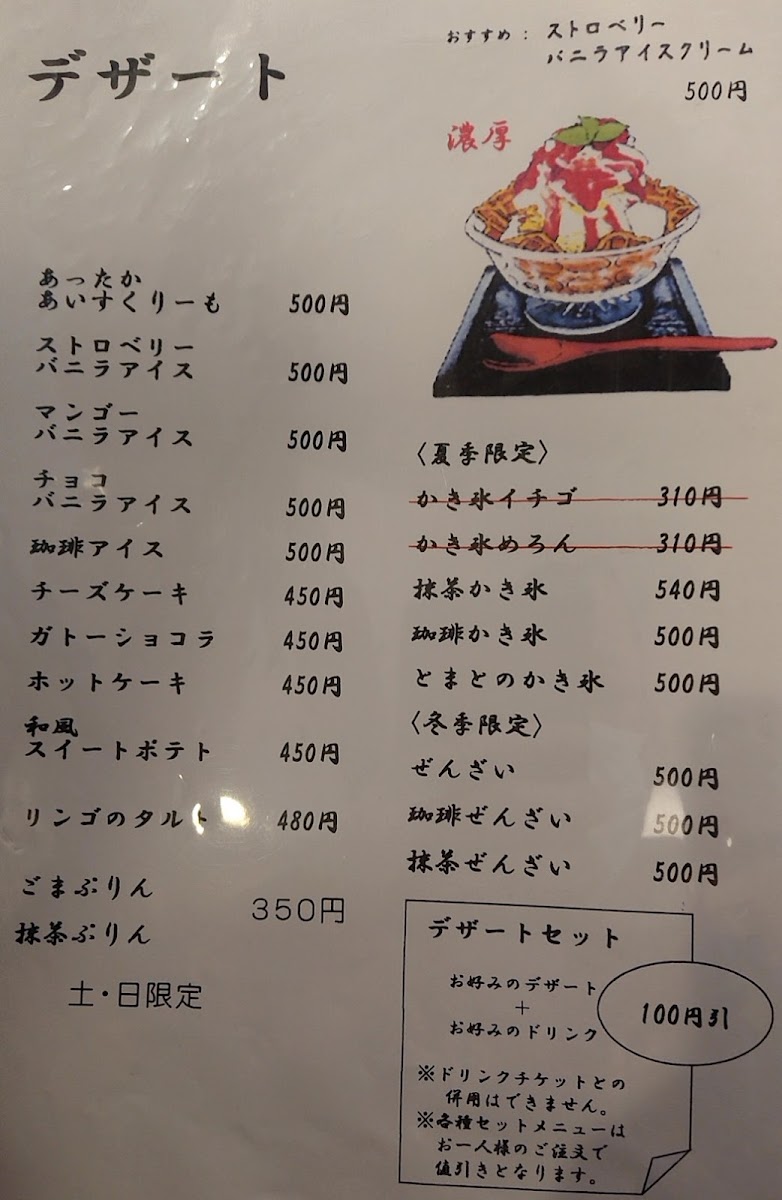 デザート
おすすめ : ストロベリー
バニラアイスクリーム
500円
濃厚
あったか
あいすくりーも 500円
ストロベリー
バニラアイス 500円
マンゴー
バニラアイス 500円
チョコ
バニラアイス 500円
珈琲アイス 500円
チーズケーキ 450円
ガトーショコラ 450円
ホットケーキ 450円
和風
スイートポテト 450円
リンゴのタルト 480円
ごまぷりん
350円
抹茶ぷりん
土・日限定
〈夏季限定〉
かき氷イチゴ 310円
かき氷めろん 310円
抹茶かき氷 540円
珈琲かき氷 500円
とまとのかき氷 500円
〈冬季限定〉
ぜんざい 500円
珈琲ぜんざい 500円
抹茶ぜんざい 500円
デザートセット
お好みのデザート
+
お好みのドリンク
100円引
※ドリンクチケットとの
併用はできません。
※各種セットメニューは
お一人様のご注文で
値引きとなります。